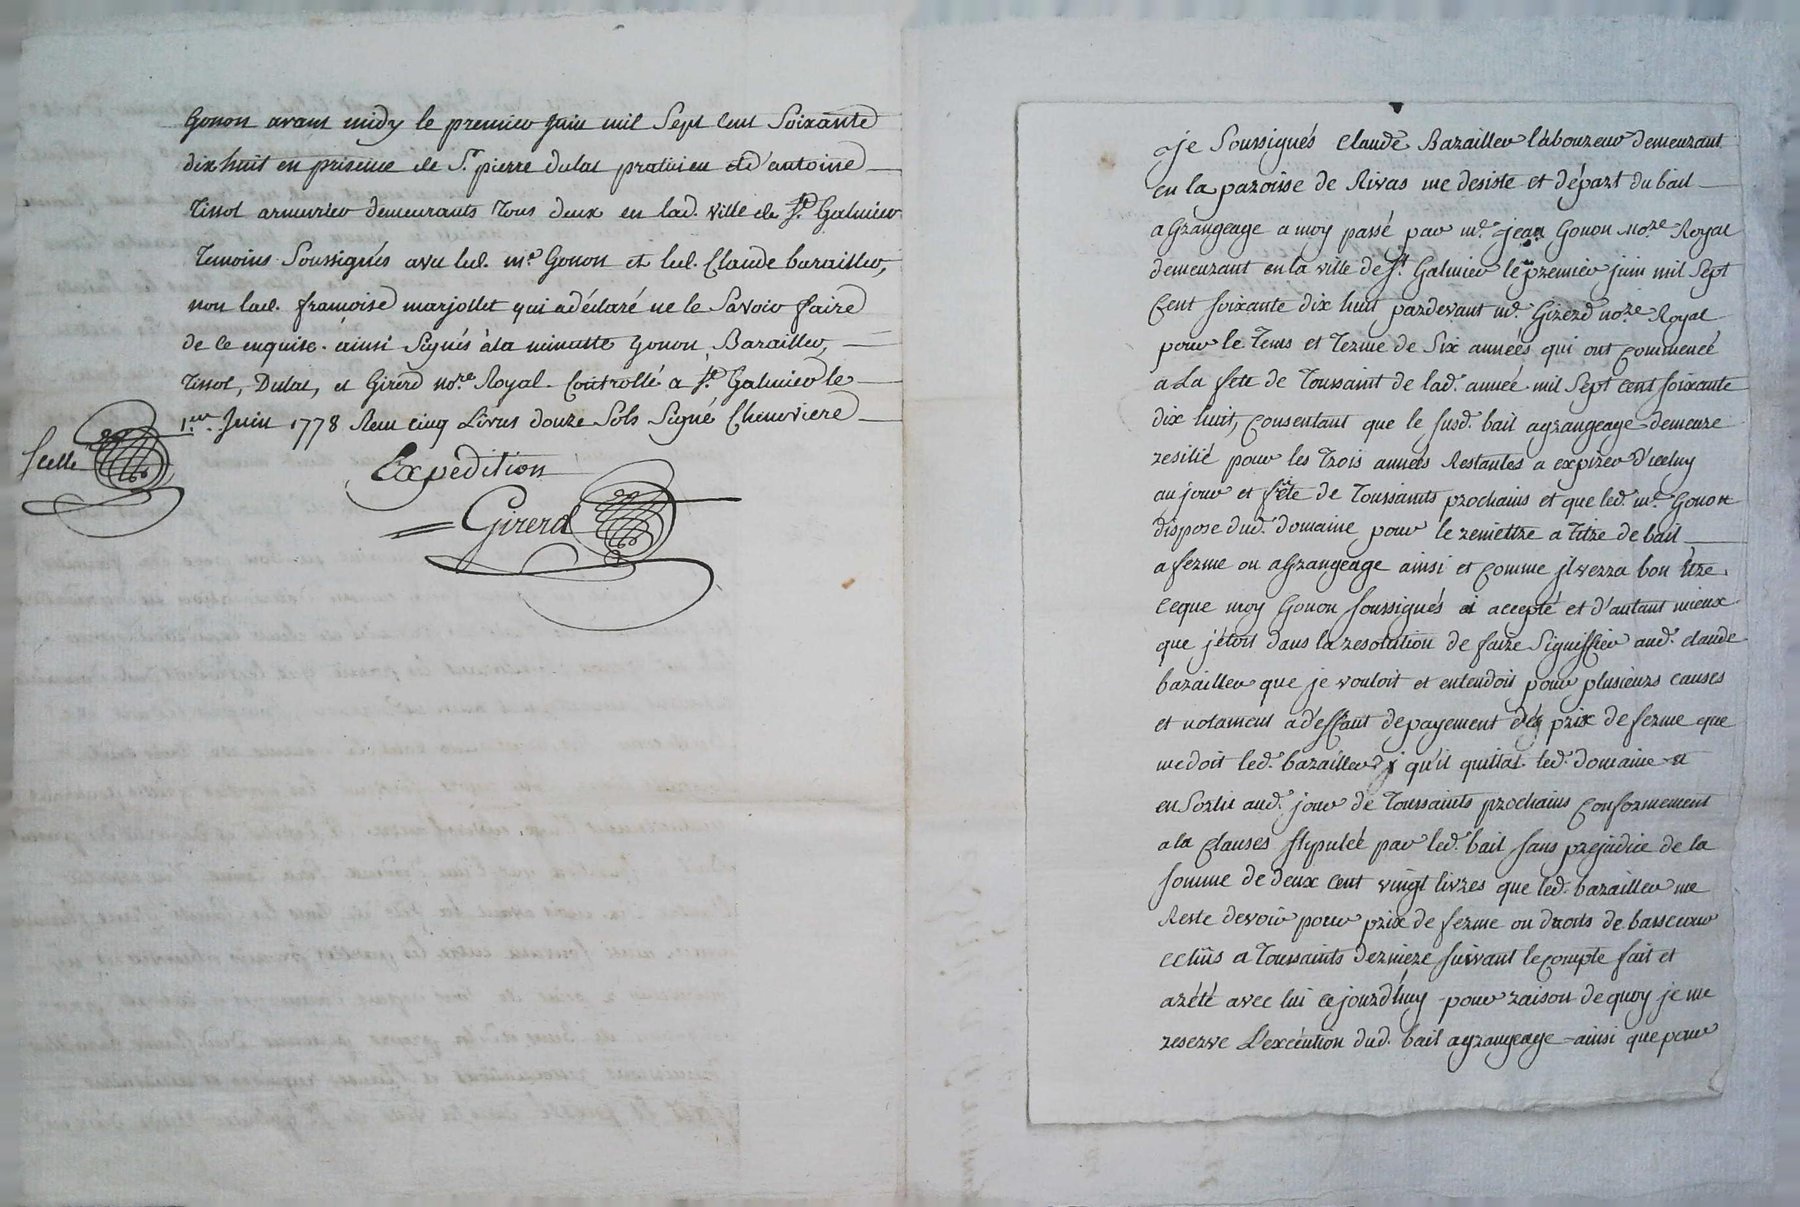 Gonon avant midy le premier Juin mil Sept Cent Soixante
dix huit en présence de Sr. pierre Dulac praticien et d'antoine
Tissot armurier demeurants Tous deux en lad. ville de St. Galmier
Temoins Soussignés avec led. me. Gonon et led. Claude barailler,
non lad. françoise marjollet qui a déclaré ne le Savoir faire
de ce enquise. ainsi Signés à la minutte Gonon, Barailler,
Tissot, Dulac, et Girerd nore. Royal. Controllé a St. Galmier le
1er. Juin 1778 Reçu cinq Livres douze Sols Signé Cheneviere
Scellé
Expédition
Girerd
Je Soussignés Claude Barailler laboureur demeurant
en la paroisse de Rivas me desiste et départ du bail
a Grangeage a moy passé par me. jean Gonon Nore. Royal
demeurant en la ville de St. Galmier le premier juin mil Sept
Cent soixante dix huit pardevant me. Girerd nore. Royal
pour le Tems et Terme de Six années qui ont commencé
a La fete de Toussaint de lad. année mil Sept cent soixante
dix huit, Consentant que le susd. bail a grangeage demeure
resilié pour les Trois années Restantes a expirer d'iceluy
au jour et fête de Toussaints prochains et que led. me. Gonon
dispose dud. domaine pour le remettre a titre de bail
a ferme ou a Grangeage ainsi et comme jl verra bon être.
Ceque moy Gonon soussignés ai accepté et d'autant mieux
que j'étois dans la resolution de faire Signiffier aud. claude
barailler que je voulois et entendois pour plusieurs causes
et notament a déffaut de payement des prix de ferme que
me doit led. barailler qu'il quittat led. domaine et
en Sortit aud. jour de Toussaints prochains Conformement
a la Clauses stipulée par led. bail sans prejudice de la
somme de deux cent vingt livres que led. barailler me
Reste devoir pour prix de ferme ou droits de bassecour
echûs a Toussaints derniere suivant le compte fait et
arété avec lui ce jourd'huy pour raison de quoy je me
reserve L'exécution dud. bail a grangeage ainsi que pour